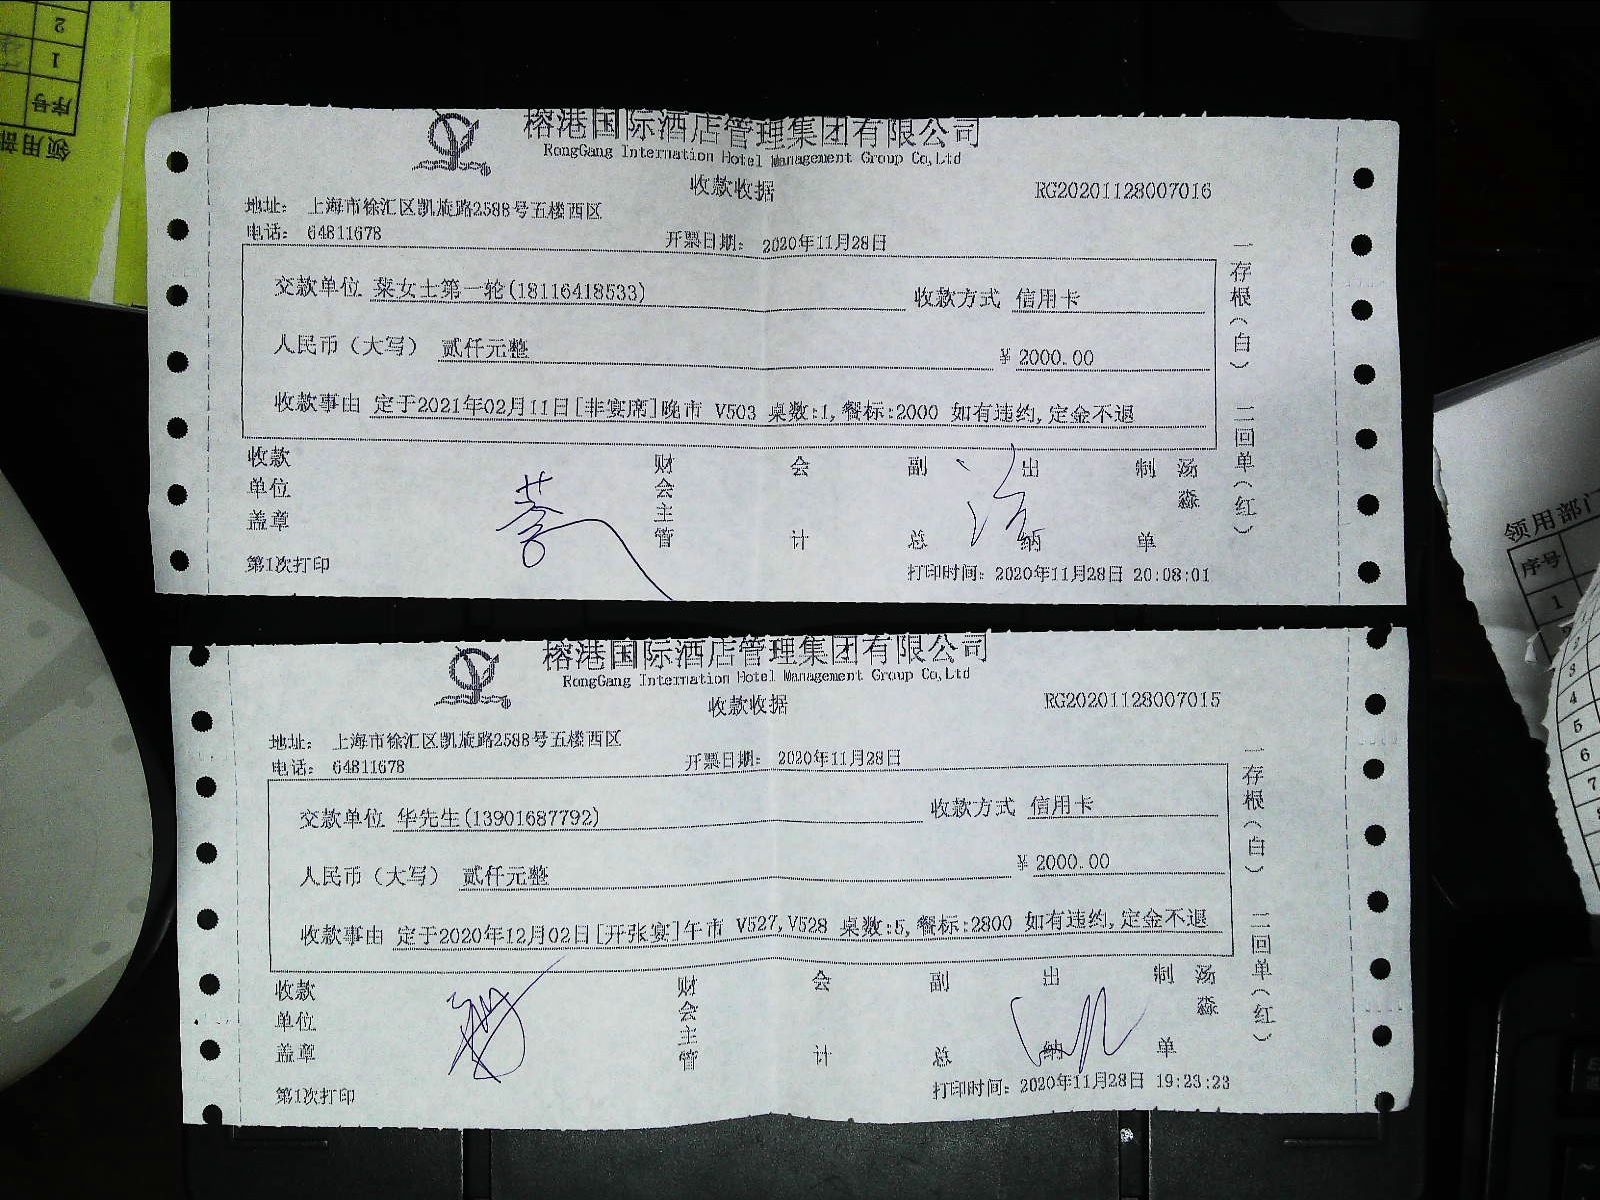 榕港国际酒店管理集团有限公司
RongGang Internation Hotel Management Group Co,Ltd
收款收据
RG20201128007016
地址： 上海市徐汇区凯旋路2588号五楼西区
电话： 64811678
开票日期： 2020年11月28日
交款单位 菜女士第一轮(18116418533)
收款方式 信用卡
人民币（大写） 贰仟元整
￥ 2000.00
收款事由 定于2021年02月11日[非宴席]晚市 V503 桌数:1,餐标:2000 如有违约,定金不退
收款单位盖章
财会主管
会计
副总
出纳
制单
汤淼
一存根（白） 二回单（红）
第1次打印
打印时间： 2020年11月28日 20:08:01
榕港国际酒店管理集团有限公司
RongGang Internation Hotel Management Group Co,Ltd
收款收据
RG20201128007015
地址： 上海市徐汇区凯旋路2588号五楼西区
电话： 64811678
开票日期： 2020年11月28日
交款单位 华先生(13901687792)
收款方式 信用卡
人民币（大写） 贰仟元整
￥ 2000.00
收款事由 定于2020年12月02日[开张宴]午市 V527,V528 桌数:5,餐标:2800 如有违约,定金不退
收款单位盖章
财会主管
会计
副总
出纳
制单
汤淼
一存根（白） 二回单（红）
第1次打印
打印时间： 2020年11月28日 19:23:23
领用部
序号
1
2
领用部门
序号
1
2
3
4
5
6
7